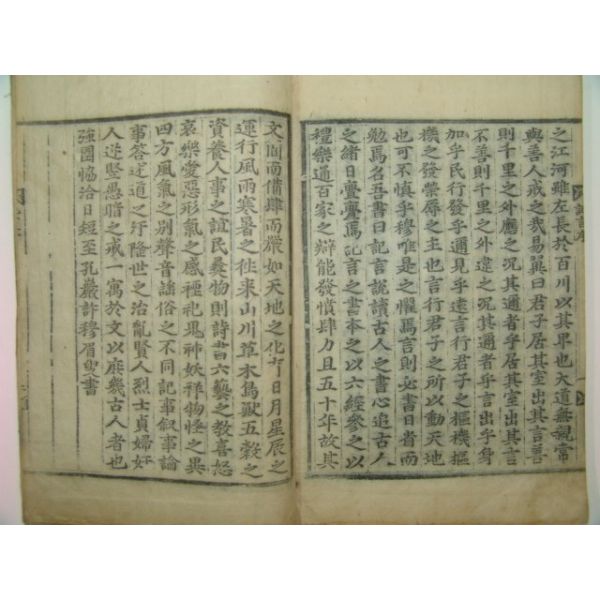 之江河雖左長於百川以其卑也天道無親常
與善人戒之哉易翼曰君子居其室出其言善
則千里之外應之況其邇者乎居其室出其言
不善則千里之外違之況其邇者乎言出乎身
加乎民行發乎邇見乎遠言行君子之樞機樞
機之發榮辱之主也言行君子之所以動天地
也可不慎乎穆唯是之懼焉言則必書日省而
勉焉名吾書曰記言說讀古人之書心追古人
之緒日亹亹焉記言之書本之以六經參之以
禮樂通百家之辯能發憤肆力且五十年故其
文簡而備肆而嚴如天地之化育日月星辰之
運行風雨寒暑之往來山川草木鳥獸五穀之
資養人事之誼民彝物則詩書六藝之教喜怒
哀樂愛惡形氣之感禋祀鬼神妖祥物怪之異
四方風氣之別聲音謠俗之不同記事叙事論
事答述道之汙隆世之治亂賢人烈士貞婦奸
人逆竪愚暗之戒一寓於文以庶幾古人者也
強圉協洽日短至孔巖許穆眉叟書